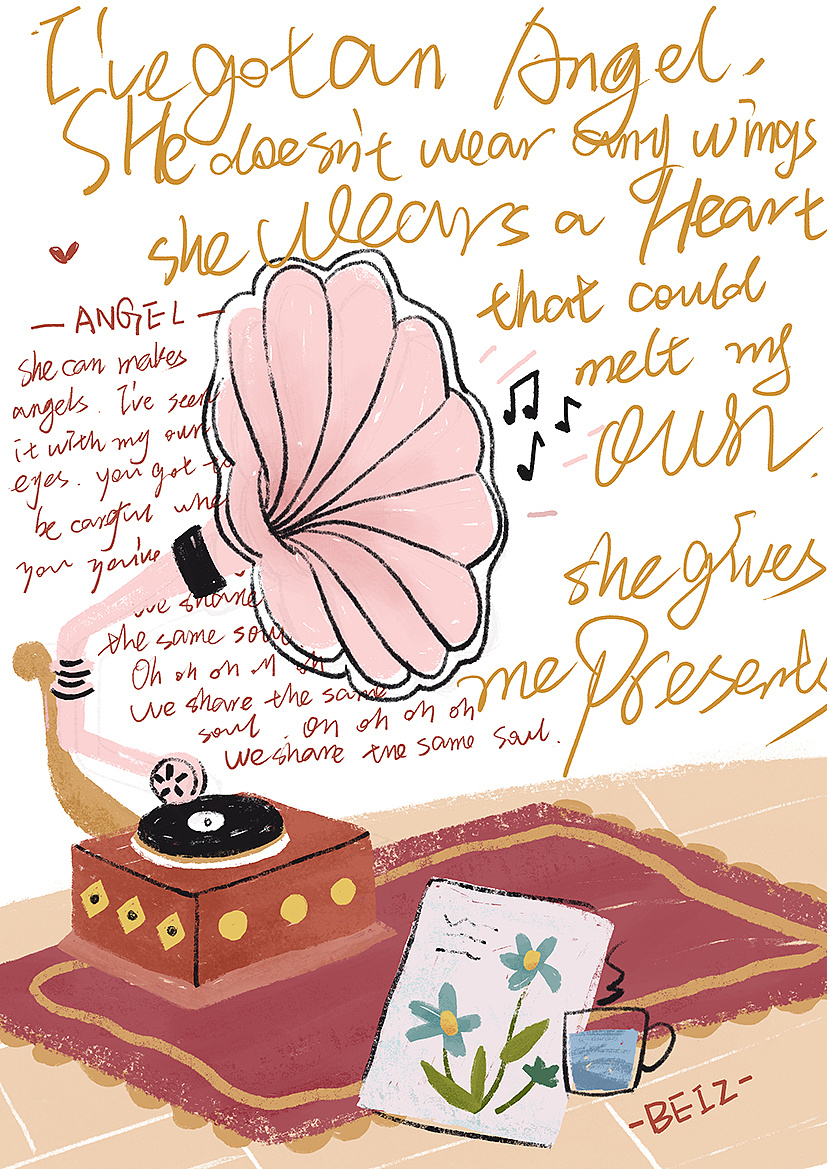 I've got an Angel.
SHe doesn't wear any wings
she wears a Heart
that could
melt my
own.
she gives
me Presents
— ANGEL —
she can makes
angels. I've seen
it with my own
eyes. you got to
be careful whe
you you've
we share
the same soul
Oh oh oh oh oh
we share the same
soul. Oh oh oh oh
we share the same soul.
-BEIZ-